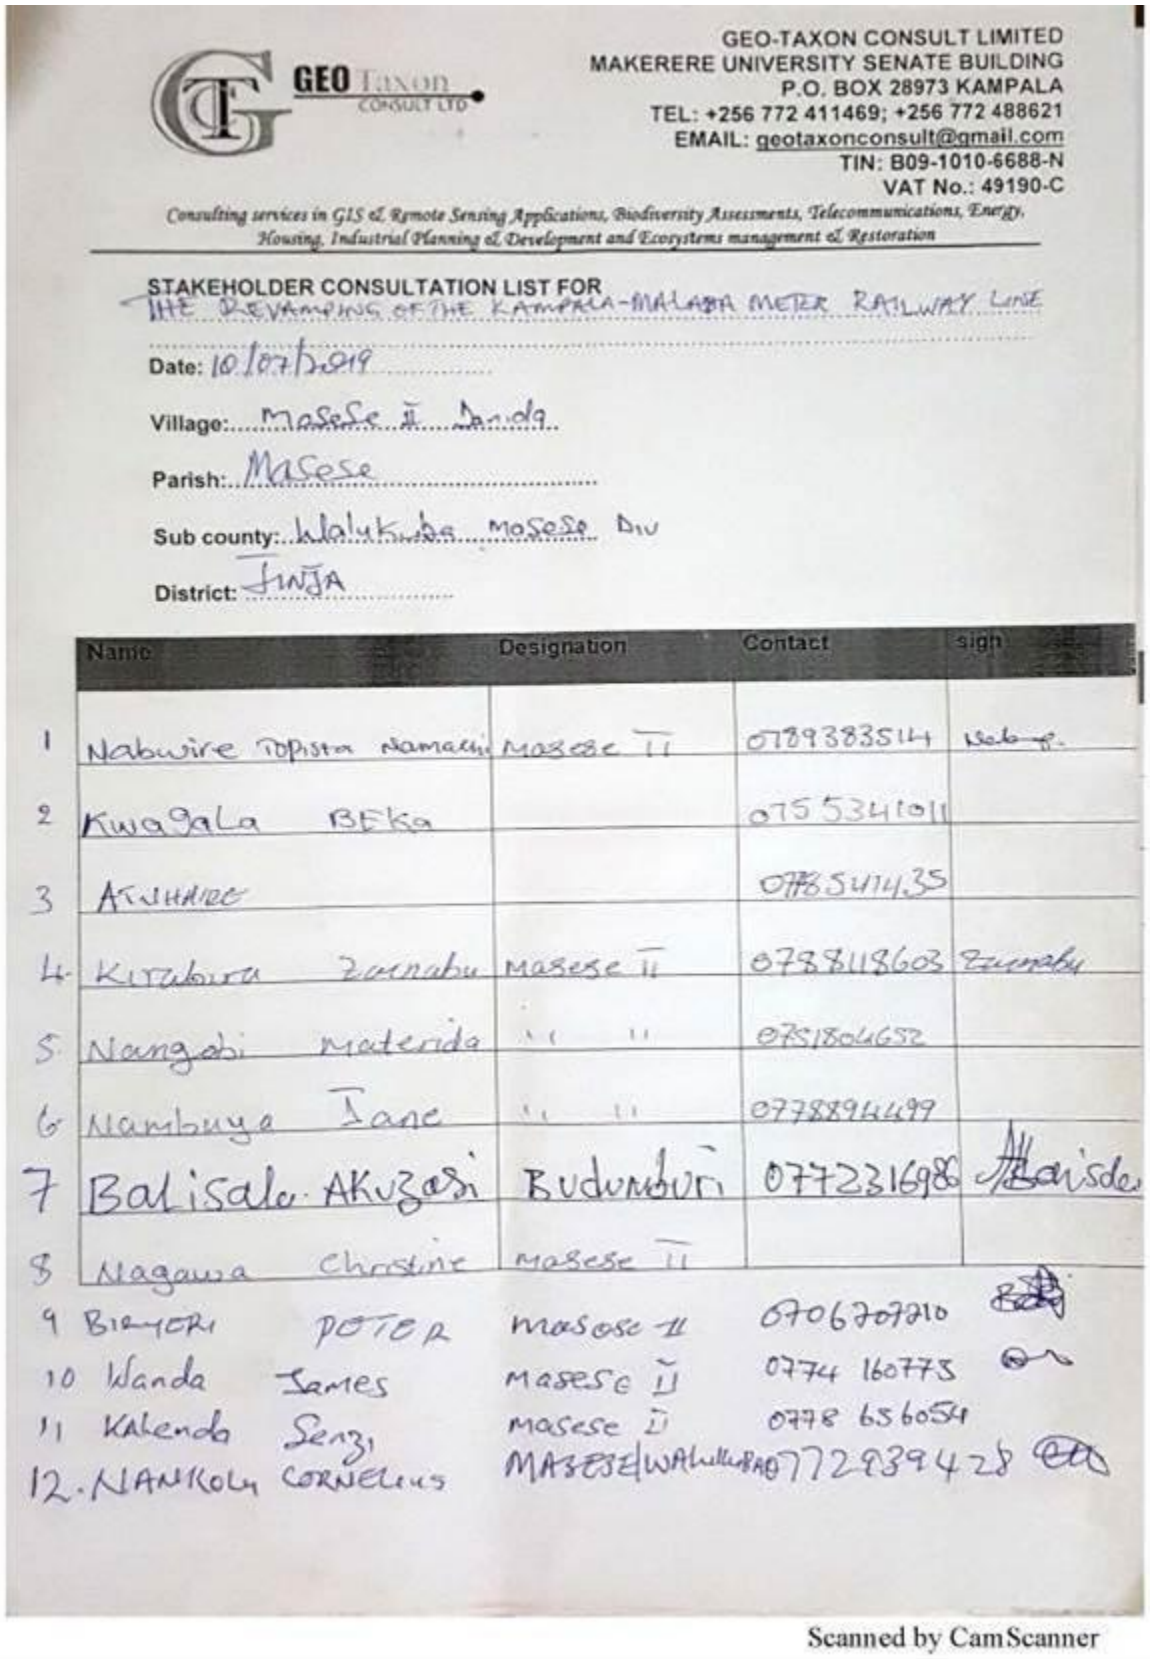 GEO Taxon
CONSULT LTD
GEO-TAXON CONSULT LIMITED
MAKERERE UNIVERSITY SENATE BUILDING
P.O. BOX 28973 KAMPALA
TEL: +256 772 411469; +256 772 488621
EMAIL: geotaxonconsult@gmail.com
TIN: B09-1010-6688-N
VAT No.: 49190-C
Consulting services in GIS & Remote Sensing Applications, Biodiversity Assessments, Telecommunications, Energy,
Housing, Industrial Planning & Development and Ecosystems management & Restoration
STAKEHOLDER CONSULTATION LIST FOR
THE REVAMPING OF THE KAMPALA-MALABA METER RAILWAY LINE
Date: 10/07/2019
Village: Masese II Danida
Parish: Masese
Sub county: Walukuba Masese Div
District: JINJA
Name Designation Contact sign
1 Nabwire Topista Masese II 0789383514
2 Kwagala BEKa 0755341011
3 
4. Zainabu Masese II 0788118603 Zainabu
5. Nangobi Materida " " 0751804652
6 Nambuya Jane " " 0778894499
7 Balisala AKUZASi Budumburi 0772316986
8 Nagawa Christine Masese II
9 PETER Masese II 0706707210
10 Wanda James Masese II 0774 160775
11 Kalenda Masese II 0778 656054
12. CORNELIUS MASESE 0772939428
Scanned by CamScanner